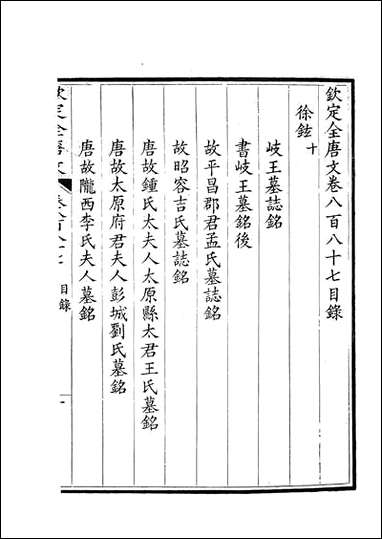 欽定全唐文卷八百八十七目錄
徐鉉十
岐王墓誌銘
書岐王墓銘後
故平昌郡君孟氏墓誌銘
故昭容吉氏墓誌銘
唐故鍾氏太夫人太原縣太君王氏墓銘
唐故太原府君夫人彭城劉氏墓銘
唐故隴西李氏夫人墓銘
欽定全唐文 卷八百八十七 目錄 一